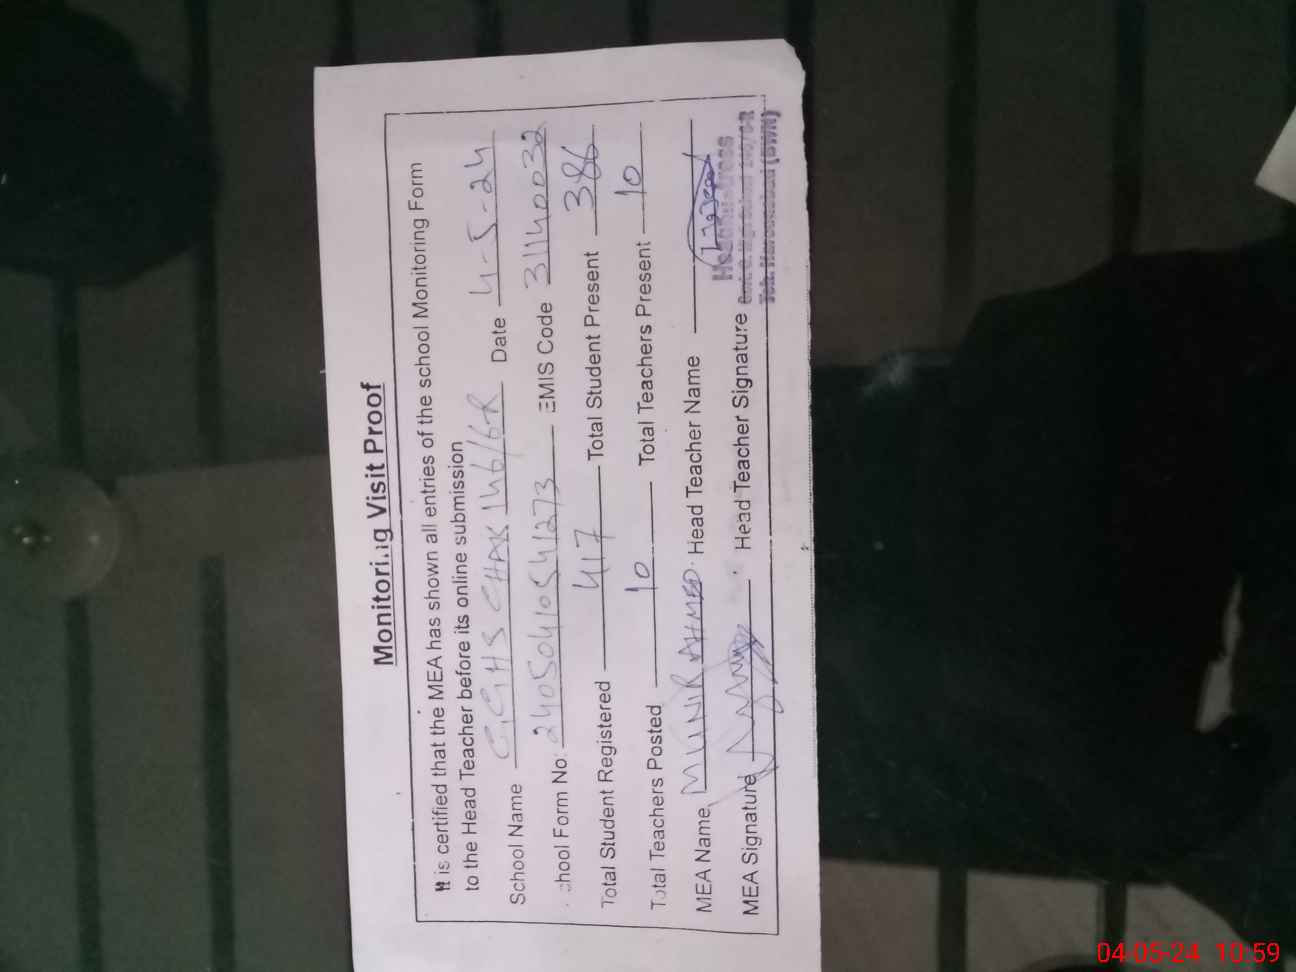 Monitoring Visit Proof
It is certified that the MEA has shown all entries of the school Monitoring Form
to the Head Teacher before its online submission
School Name G.G.H.S CHAK 146/6R Date 4-5-24
chool Form No: 24050410541273 EMIS Code 31140032
Total Student Registered 417 Total Student Present 386
Total Teachers Posted 10 Total Teachers Present 10
MEA Name MUNIR AHMED Head Teacher Name
MEA Signature Head Teacher Signature
Headmistress
Govt. G. High School 146/6-R
Teh. Haroonabad (BWN)
04-05-24 10:59